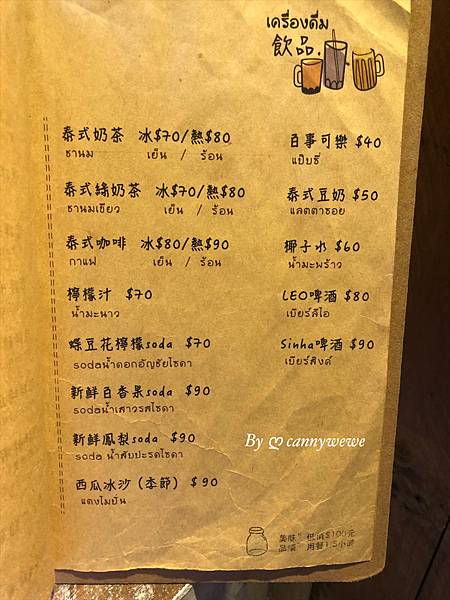 เครื่องดื่ม
飲品.
泰式奶茶 冰$70/熱$80
ชานม เย็น / ร้อน
泰式綠奶茶 冰$70/熱$80
ชานมเขียว เย็น / ร้อน
泰式咖啡 冰$80/熱$90
กาแฟ เย็น / ร้อน
檸檬汁 $70
น้ำมะนาว
蝶豆花檸檬soda $70
sodaน้ำดอกอัญชัยโซดา
新鮮百香果soda $90
sodaน้ำเสาวรสโซดา
新鮮鳳梨soda $90
soda น้ำสับปะรดโซดา
西瓜冰沙 (季節) $90
แตงโมปั่น
百事可樂 $40
แป๊บซี่
泰式豆奶 $50
แลตตาซอย
椰子水 $60
น้ำมะพร้าว
LEO啤酒 $80
เบียร์ลีโอ
Sinha啤酒 $90
เบียร์สิงค์
By cannywewe
美味" 低消$100元
品嚐" 用餐1.5小時